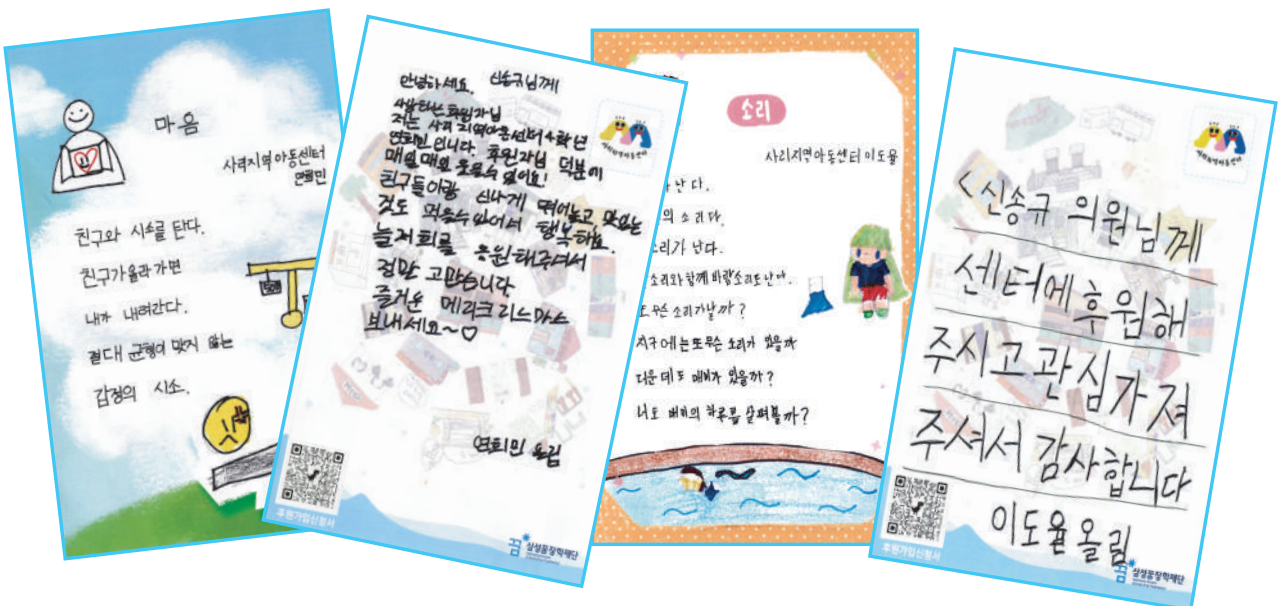 마음
사리지역아동센터
연희민
친구와 시소를 탄다.
친구가 올라가면
내가 내려간다.
절대 균형이 맞지 않는
감정의 시소.
안녕하세요. 신송규님께
사랑하는 후원자님
저는 사리지역아동센터 4학년
연희민입니다. 후원자님 덕분에
매일매일 웃을수 있어요!
친구들이랑 신나게 뛰어놀고, 맛있는
것도 먹을수 있어서 행복해요.
늘 저희를 응원해주셔서
정말 고맙습니다
즐거운 메리크리스마스
보내세요~♡
연희민 올림
후원가입신청서
꿈 삼성꿈장학재단
소리
사리지역아동센터 이도율
난다.
의 소리다.
소리가 난다.
소리와 함께 바람소리도 난다.
무슨 소리가 날까?
지구에는 또 무슨 소리가 있을까
더운 데도 매미가 있을까?
나도 매미의 하루를 살펴볼까?
사리지역아동센터
<신송규 의원님께
센터에 후원해
주시고 관심가져
주셔서 감사합니다
이도율 올림
후원가입신청서
꿈 삼성꿈장학재단